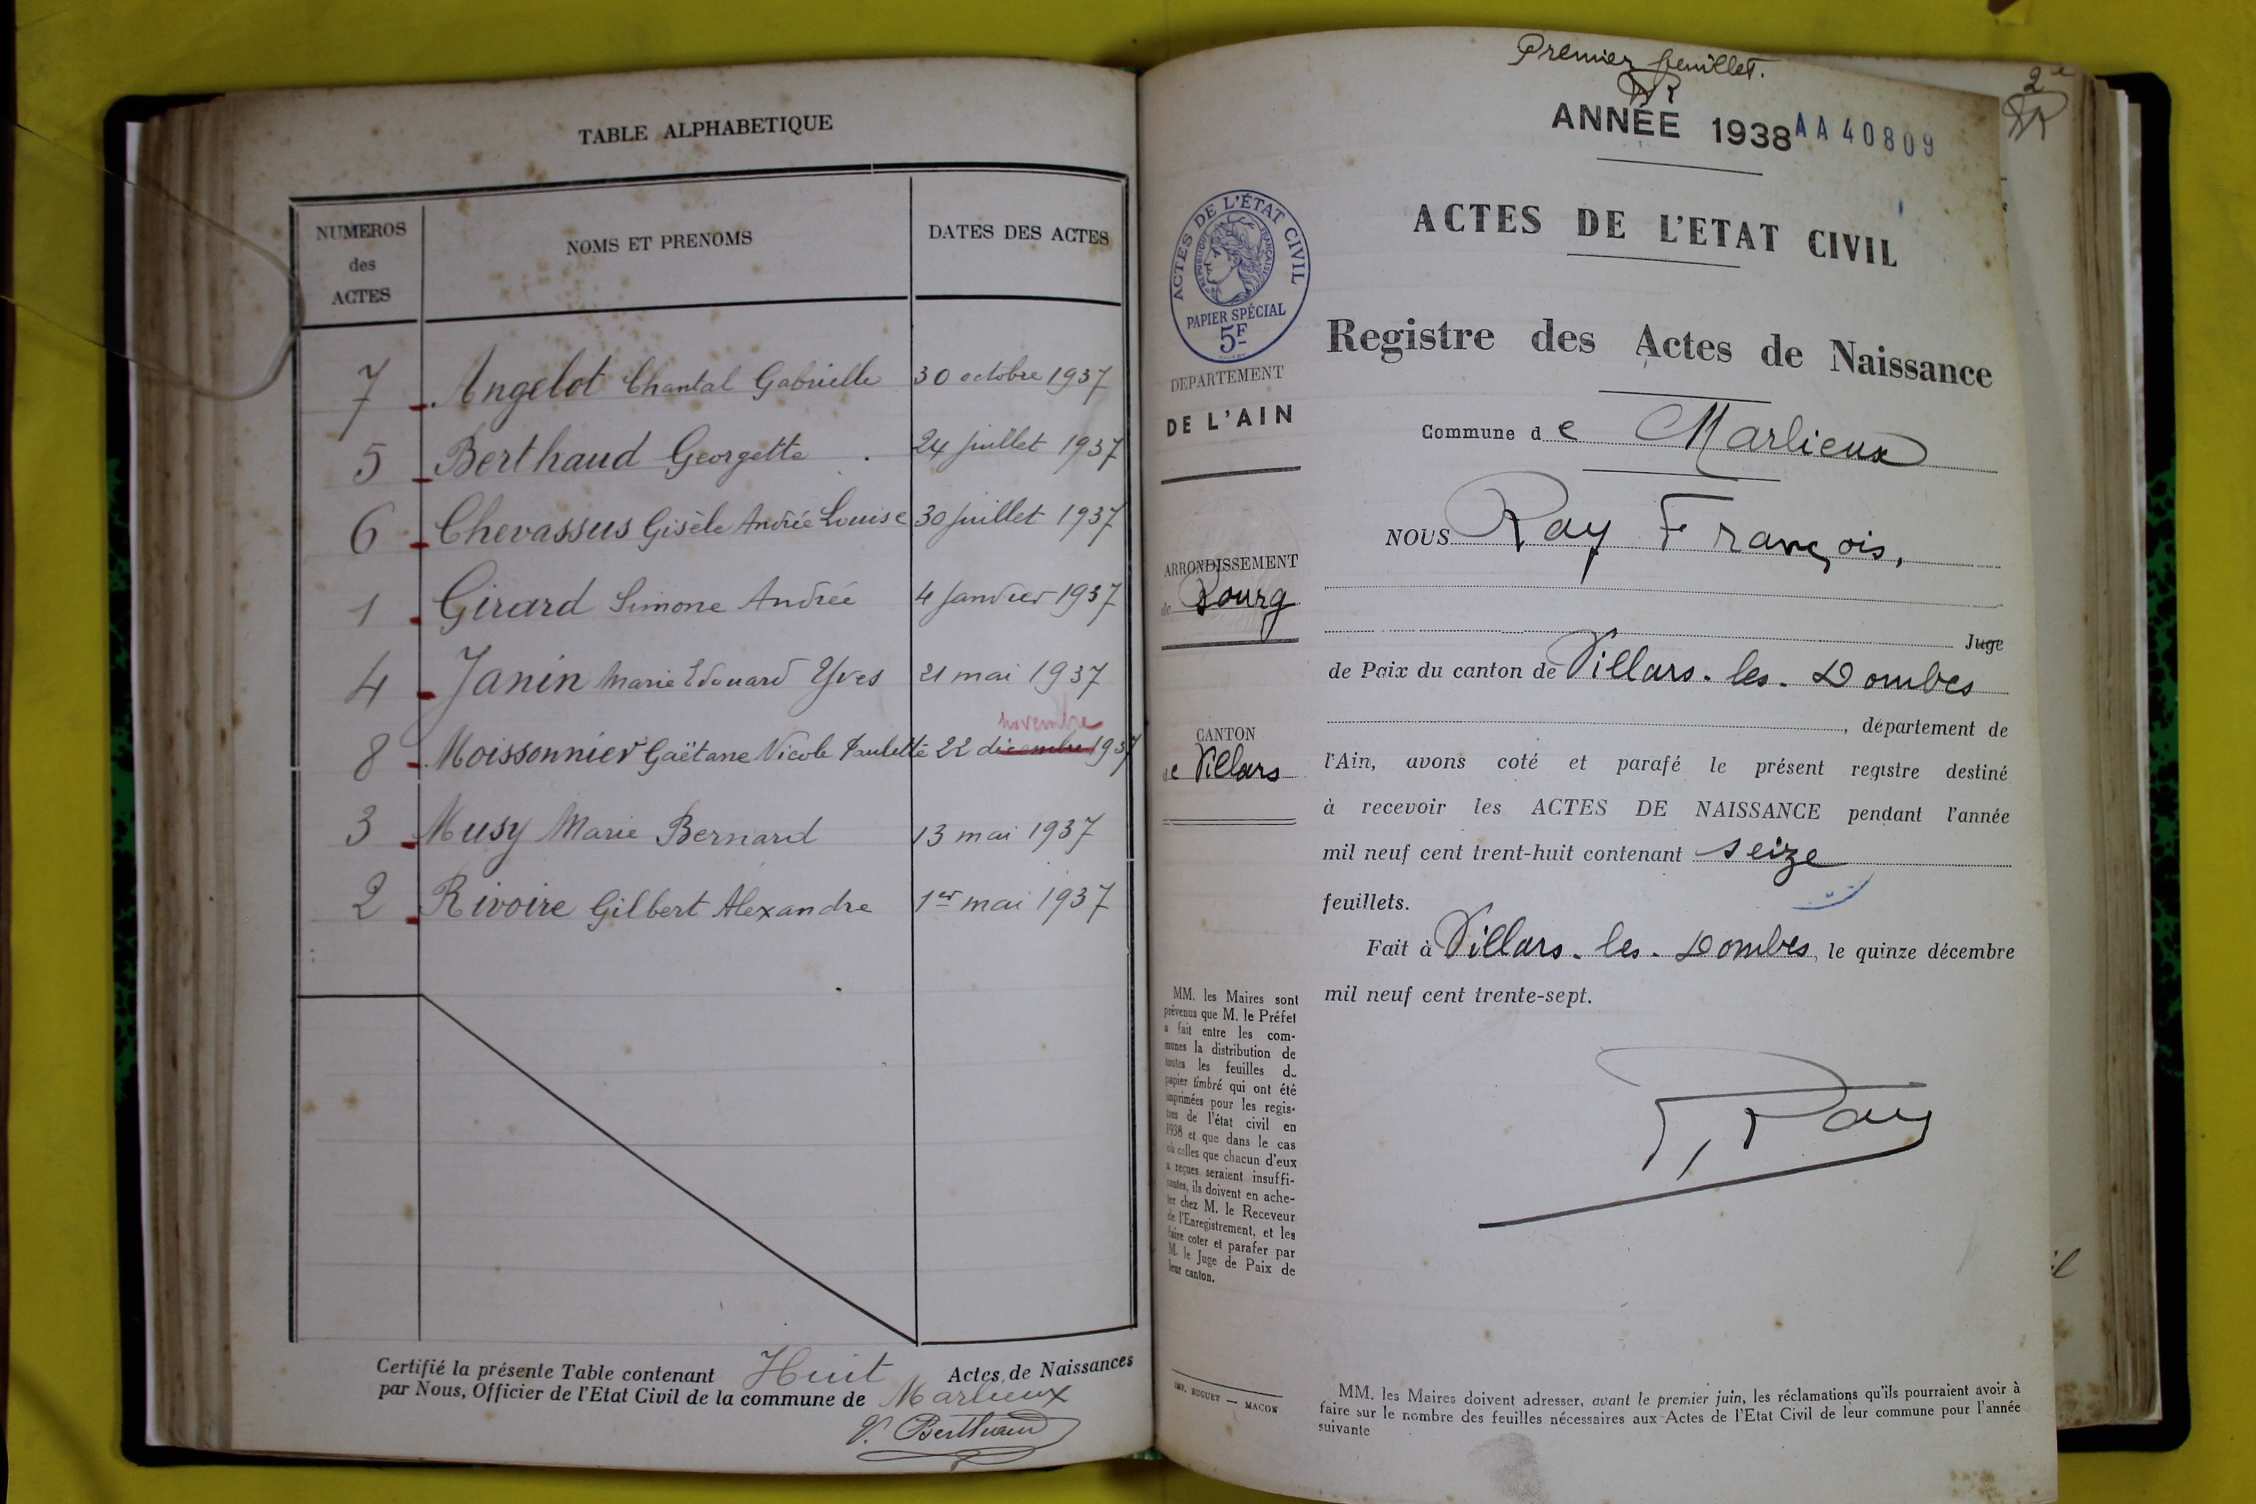 TABLE ALPHABETIQUE
NUMEROS
des
ACTES
NOMS ET PRENOMS
DATES DES ACTES
7 Angelot Chantal Gabrielle 30 octobre 1937
5 Berthaud Georgette . 24 Juillet 1937
6 Chevassus Gisèle Andrée Louise 30 Juillet 1937
1 Girard Simone Andrée 4 Janvier 1937
4 Janin Marie Edouard Yves 21 mai 1937
novembre
8 Moissonnier Gaëtane Nicole Paulette 22 décembre 1937
3 Musy Marie Bernard 13 mai 1937
2 Rivoire Gilbert Alexandre 1er mai 1937
Certifié la présente Table contenant Huit Actes de Naissances
par Nous, Officier de l'Etat Civil de la commune de Marlieux
Berthaud
Premier feuillet.
ANNÉE 1938 AA 40809
2e
ACTES DE L'ÉTAT CIVIL
RÉPUBLIQUE FRANÇAISE
PAPIER SPÉCIAL
5F
DEPARTEMENT
DE L'AIN
ARRONDISSEMENT
de Bourg
CANTON
de Villars
MM. les Maires sont
prévenus que M. le Préfet
a fait entre les com-
munes la distribution de
toutes les feuilles du
papier timbré qui ont été
imprimées pour les regis-
tres de l'état civil en
1938 et que dans le cas
où celles que chacun d'eux
a reçues seraient insuffi-
santes, ils doivent en ache-
ter chez M. le Receveur
de l'Enregistrement, et les
faire coter et parafer par
M. le Juge de Paix de
leur canton.
IMP. BUGUET — MACON
ACTES DE L'ETAT CIVIL
Registre des Actes de Naissance
Commune de Marlieux
NOUS Ray François,
Juge
de Paix du canton de Villars-les-Dombes
, département de
l'Ain, avons coté et parafé le présent registre destiné
à recevoir les ACTES DE NAISSANCE pendant l'année
mil neuf cent trent-huit contenant seize
feuillets.
Fait à Villars-les-Dombes, le quinze décembre
mil neuf cent trente-sept.
F. Ray
MM. les Maires doivent adresser, avant le premier juin, les réclamations qu'ils pourraient avoir à
faire sur le nombre des feuilles nécessaires aux Actes de l'Etat Civil de leur commune pour l'année
suivante